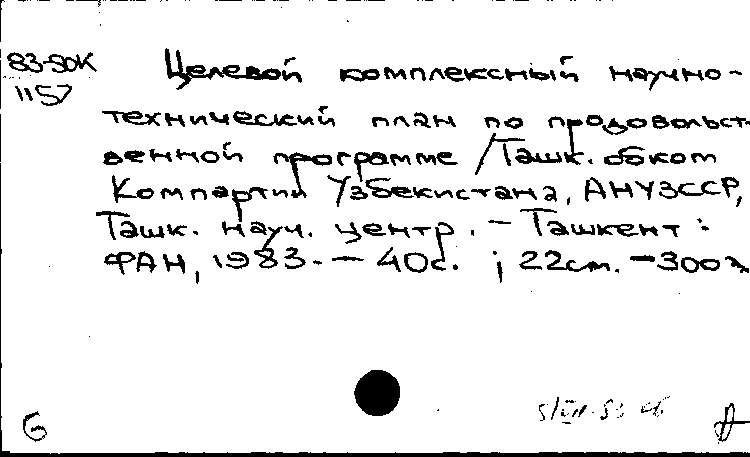 83-80К Целевой комплексный научно-
1157
технический план по продовольст-
венной программе / Ташк. обком
Компартии Узбекистана, АН УЗССР,
Ташк. науч. центр. – Ташкент :
ФАН, 1983. – 40с. ; 22см. – 300э
Б